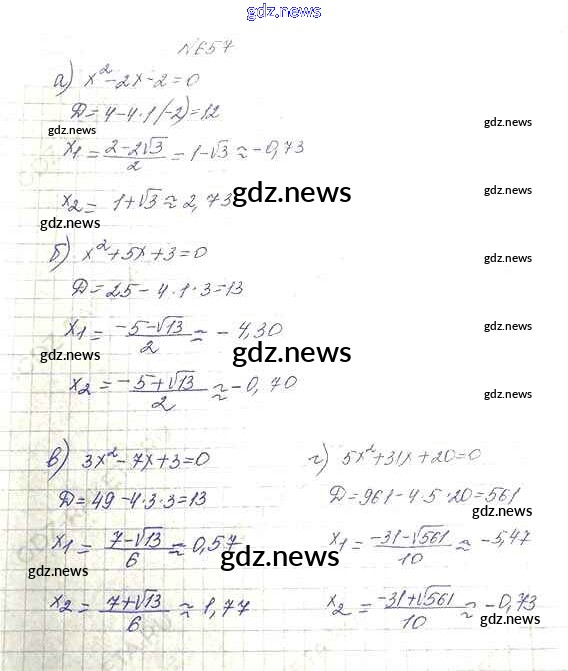 gdz.news
№657
а) x² - 2x - 2 = 0
D = 4 - 4·1(-2) = 12
gdz.news
gdz.news
x1 = (2 - 2√3)/2 = 1 - √3 ≈ -0,73
x2 = 1 + √3 ≈ 2,73
gdz.news
gdz.news
gdz.news
б) x² + 5x + 3 = 0
gdz.news
D = 25 - 4·1·3 = 13
x1 = (-5 - √13)/2 ≈ -4,30
gdz.news
gdz.news
gdz.news
x2 = (-5 + √13)/2 ≈ -0,70
gdz.news
в) 3x² - 7x + 3 = 0
D = 49 - 4·3·3 = 13
x1 = (7 - √13)/6 ≈ 0,57
gdz.news
gdz.news
x2 = (7 + √13)/6 ≈ 1,77
г) 5x² + 31x + 20 = 0
D = 961 - 4·5·20 = 561
gdz.news
x1 = (-31 - √561)/10 ≈ -5,47
x2 = (-31 + √561)/10 ≈ -0,73
gdz.news